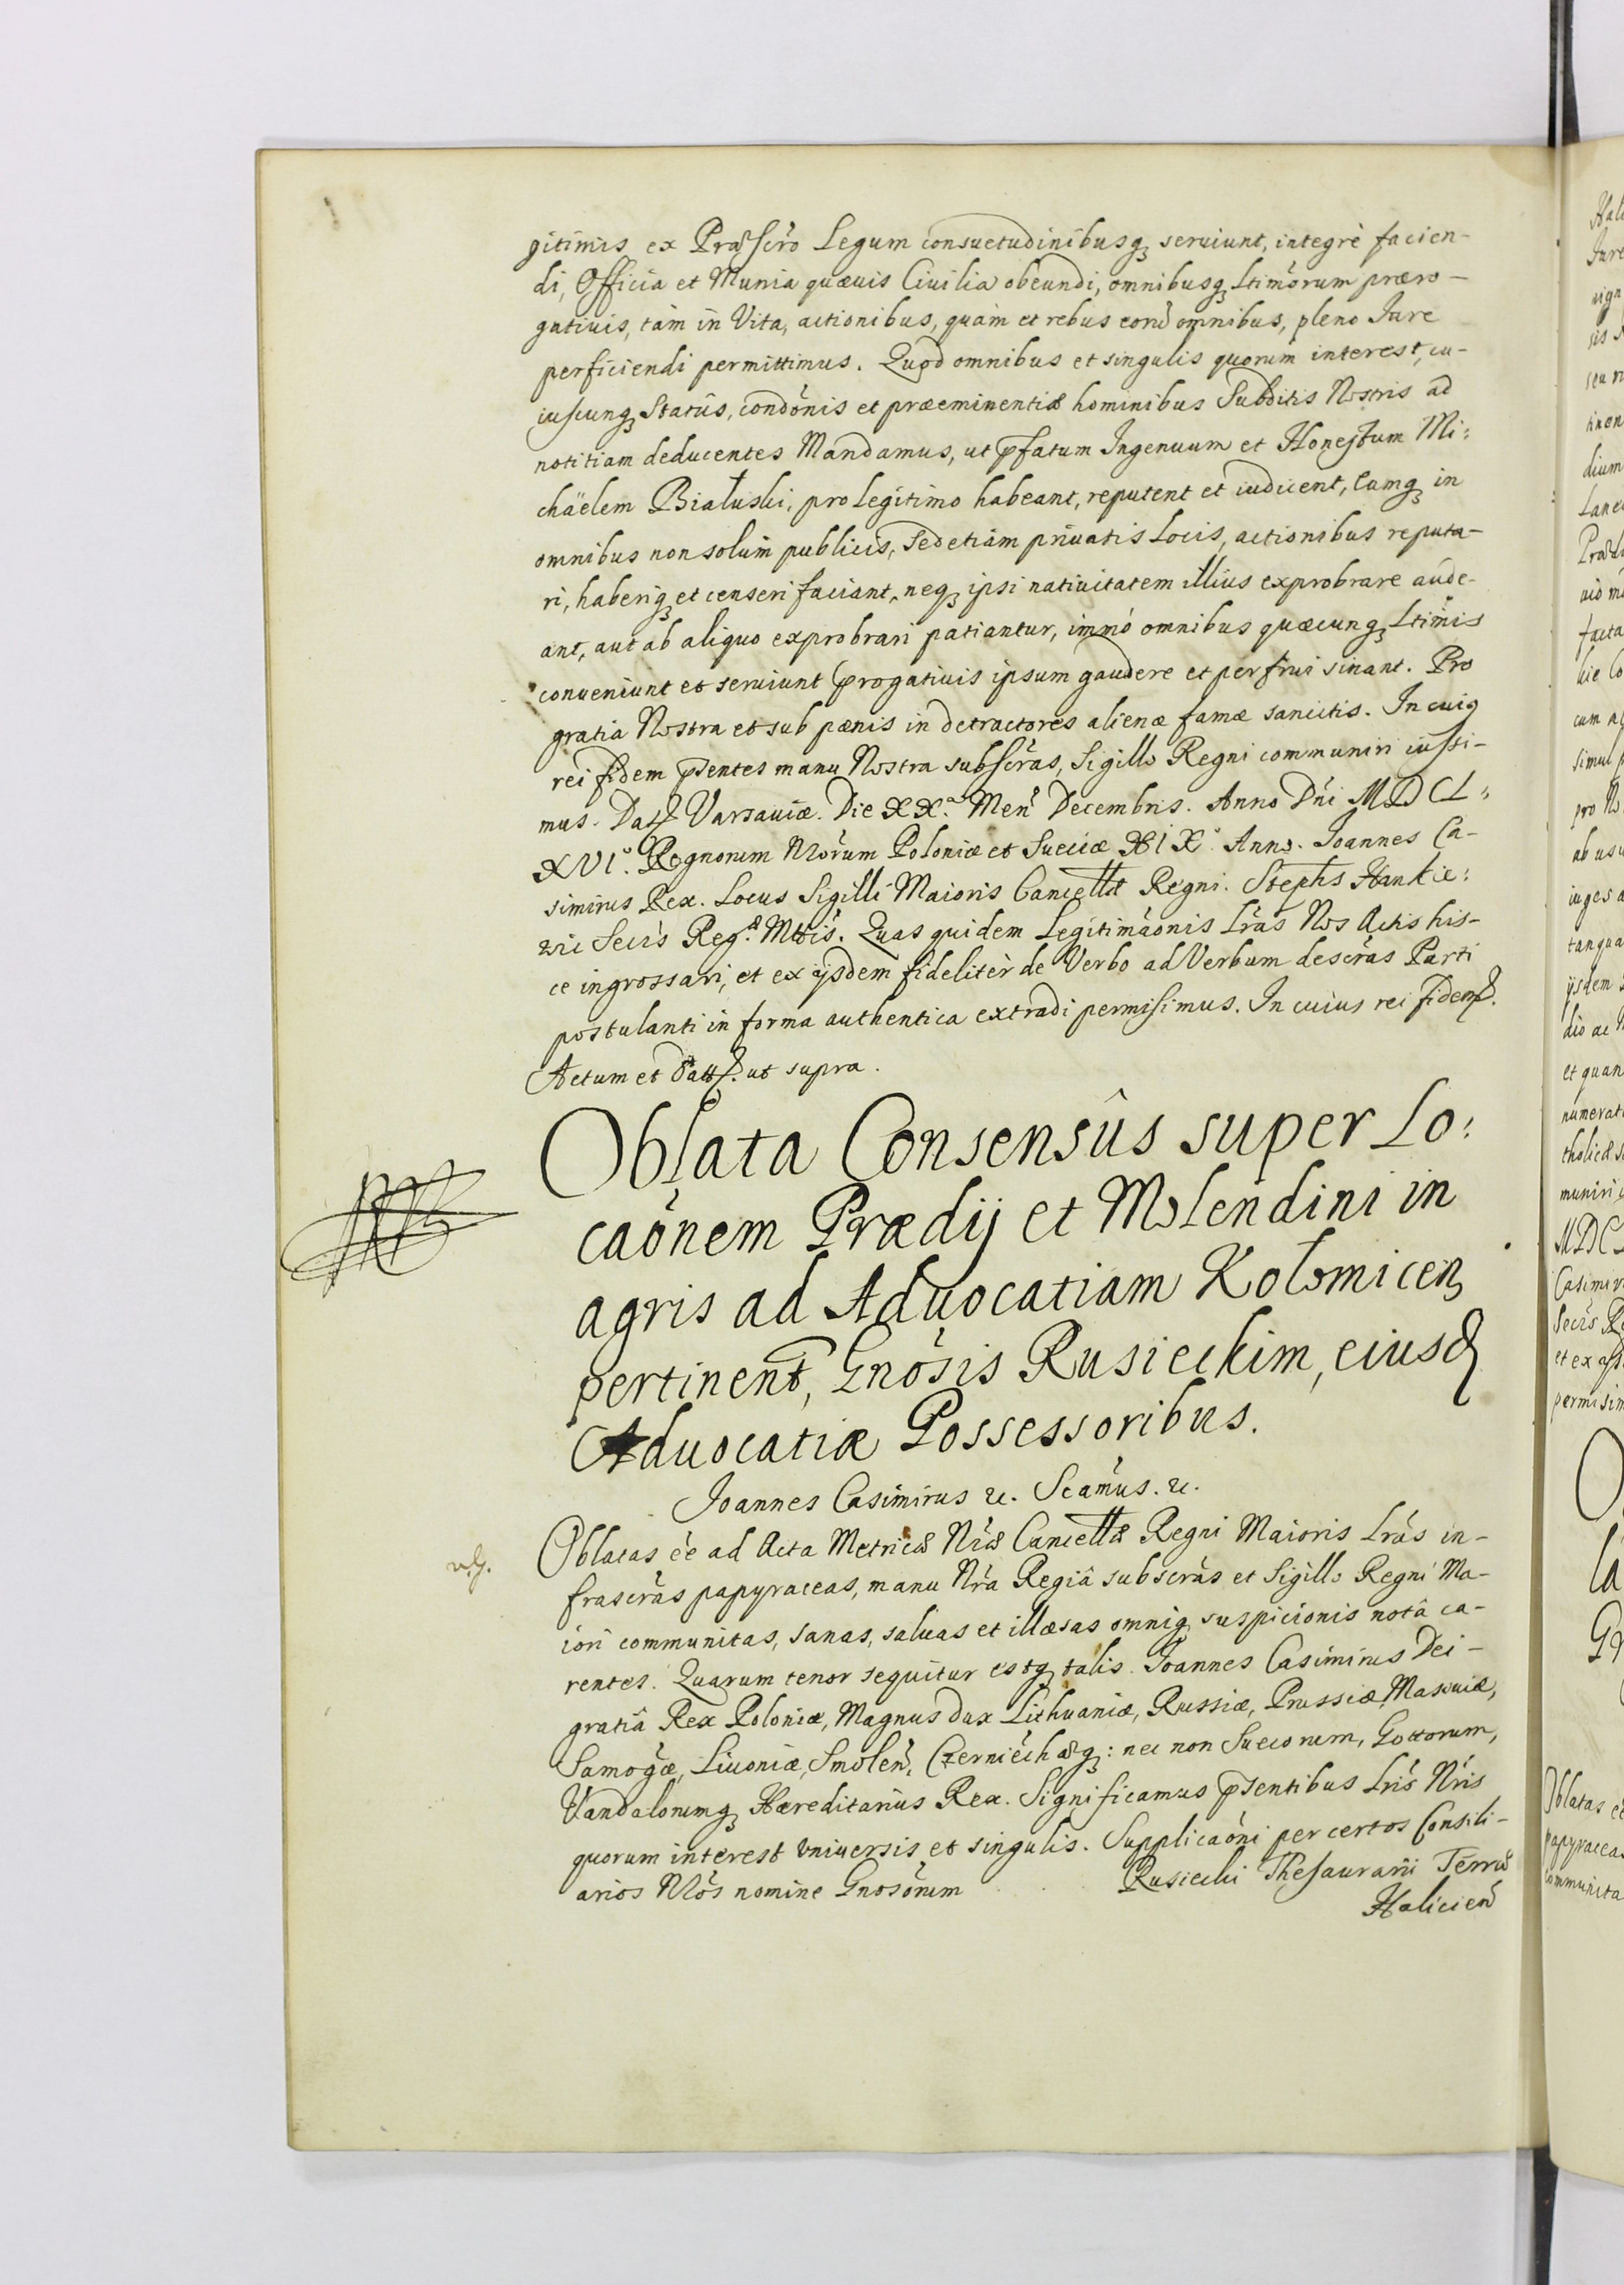 gitimis ex Præscro Legum consuetudinibusq₃ seruiunt, integrè facien-
di, Officia et Munia quæuis Ciuilia obeundi, omnibusq₃ Ltimorum præro-
gatiuis, tàm in Vita, actionibus, quàm et rebus eorũ omnibus, pleno Jure
perficiendi permittimus. Quod omnibus et singulis quorum interest, cu-
iuscunq₃ Statûs, condõnis et præeminentiæ hominibus Subditis Nostris ad
notitiam deducentes Mandamus, ut pfatum Ingenuum et Honestum Mi:
chäelem Białuski, pro legitimo habeant, reputent et iudicent, Eumq₃ in
omnibus non solum publicis, sed etiàm priuatis Locis, actionibus reputa-
ri, haberiq₃ et censeri faciant, neq₃ ipsi natiuitatem illius exprobrare aude-
ant, aut ab aliquo exprobrari patiantur, immò omnibus quæcunq₃ Ltimis
conueniunt et seruiunt progatiuis ipsum gaudere et perfrui sinant. Pro
gratia Nostra et sub pœnis in detractores alienæ famæ sancitis. In cuiq
rei fidem pñtentes manu Nostra subscras, Sigillo Regni communiri iussi-
mus. Dat Varsauiæ. Die XX.ª Men Decembris. Anno Dni MDCL:
XVI.º Regnorum Nrorum Poloniæ et Sueciæ XIX.º Anno. Joannes Ca-
simirus Rex. Locus Sigilli Maioris Cancellæ Regni. Stephs Hankie:
wic Secrs Reg.æ Mttis. Quas quidem Legitimaonis Lras Nos Actis his-
ce ingrossari, et ex ijsdem fidelitèr de Verbo ad Verbum descras Parti
postulanti in forma authentica extradi permisimus. In cuius rei fidem.
Actum et Datt. ut supra.
Oblata Consensûs super Lo:
caõnem Prædij et Molendini in
agris ad Aduocatiam Kolomicen
pertinent, Gnosis Rusieckim, eiusd
Aduocatiæ Possessoribus.
Joannes Casimirus &c. Scamus. &c.
Oblatas ee ad Acta Metricæ Nræ Cancellæ Regni Maioris Lras in-
frascras papyraceas, manu Nra Regiâ subscras et Sigillo Regni Ma-
iori communitas, sanas, saluas et illæsas omniq₃ suspicionis notâ ca-
rentes. Quarum tenor sequitur estq₃ talis. Joannes Casimirus Dei-
gratiâ Rex Poloniæ, Magnus Dux Lithuaniæ, Russiæ, Prussiæ, Masouiæ,
Samogæ, Liuoniæ, Smolen, Czerniechæq₃: nec non Suecorum, Gottorum,
Vandalorumq₃ Hæreditarius Rex. Significamus pñtentibus Lris Nris
quorum interest vniuersis et singulis. Supplicaõni per certos Consili-
arios Nros nomine Gnosorum Rusiecki Thesaurarii Terræ
Halicien